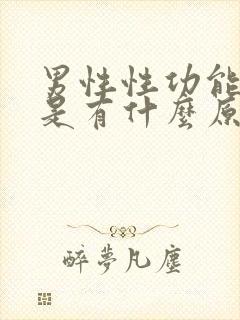 男性性功能
是有什麼原
醉夢凡塵